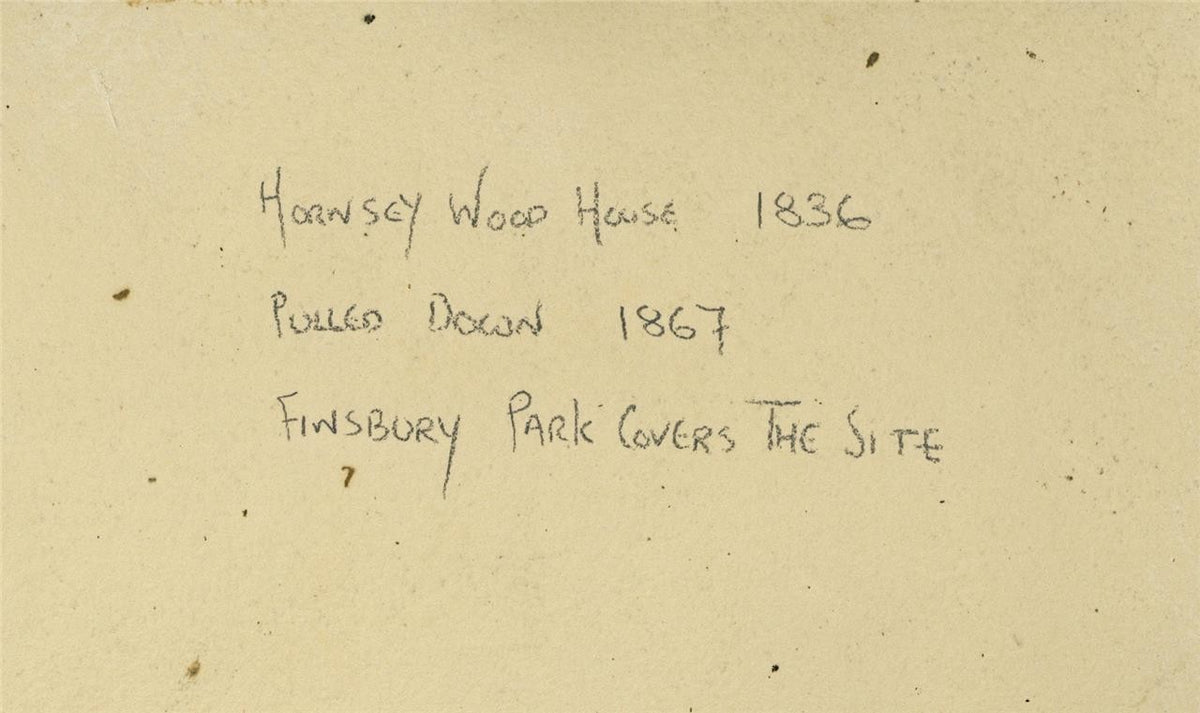 HORNSEY WOOD HOUSE 1836
PULLED DOWN 1867
FINSBURY PARK COVERS THE SITE